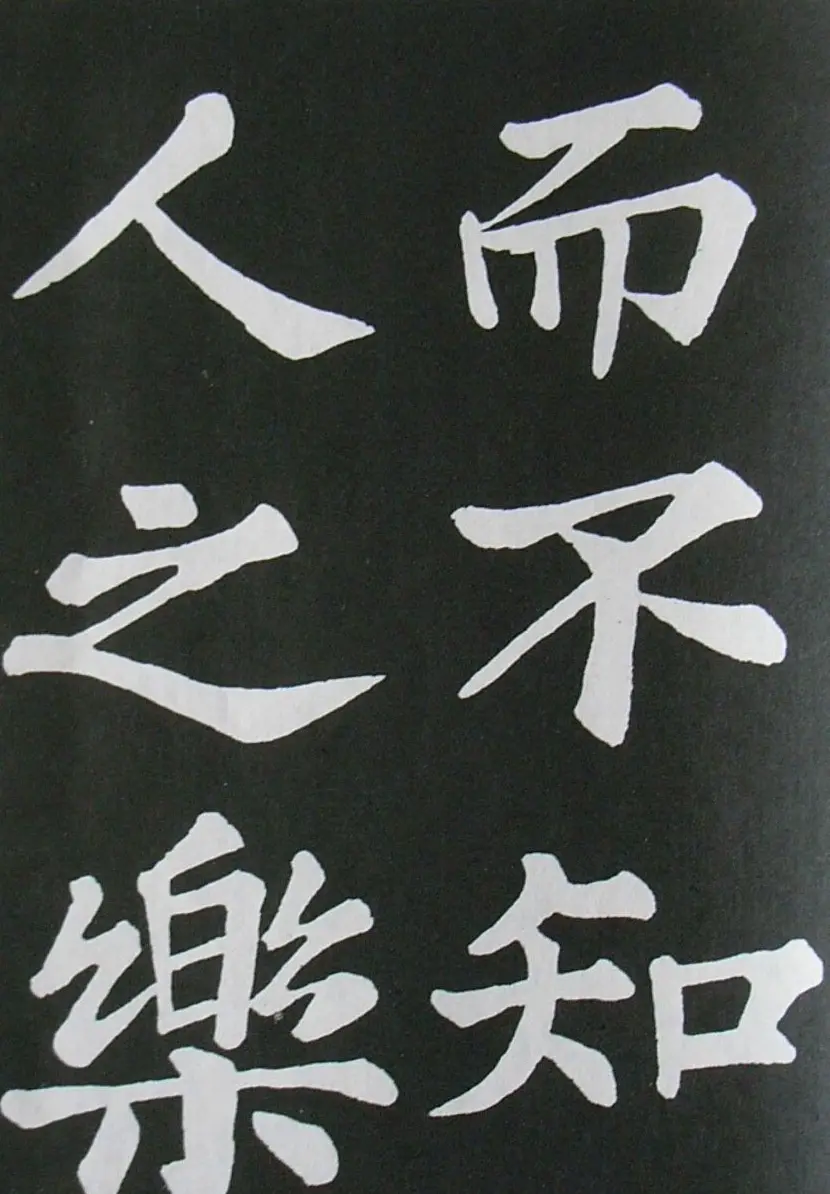 而不知
人之樂